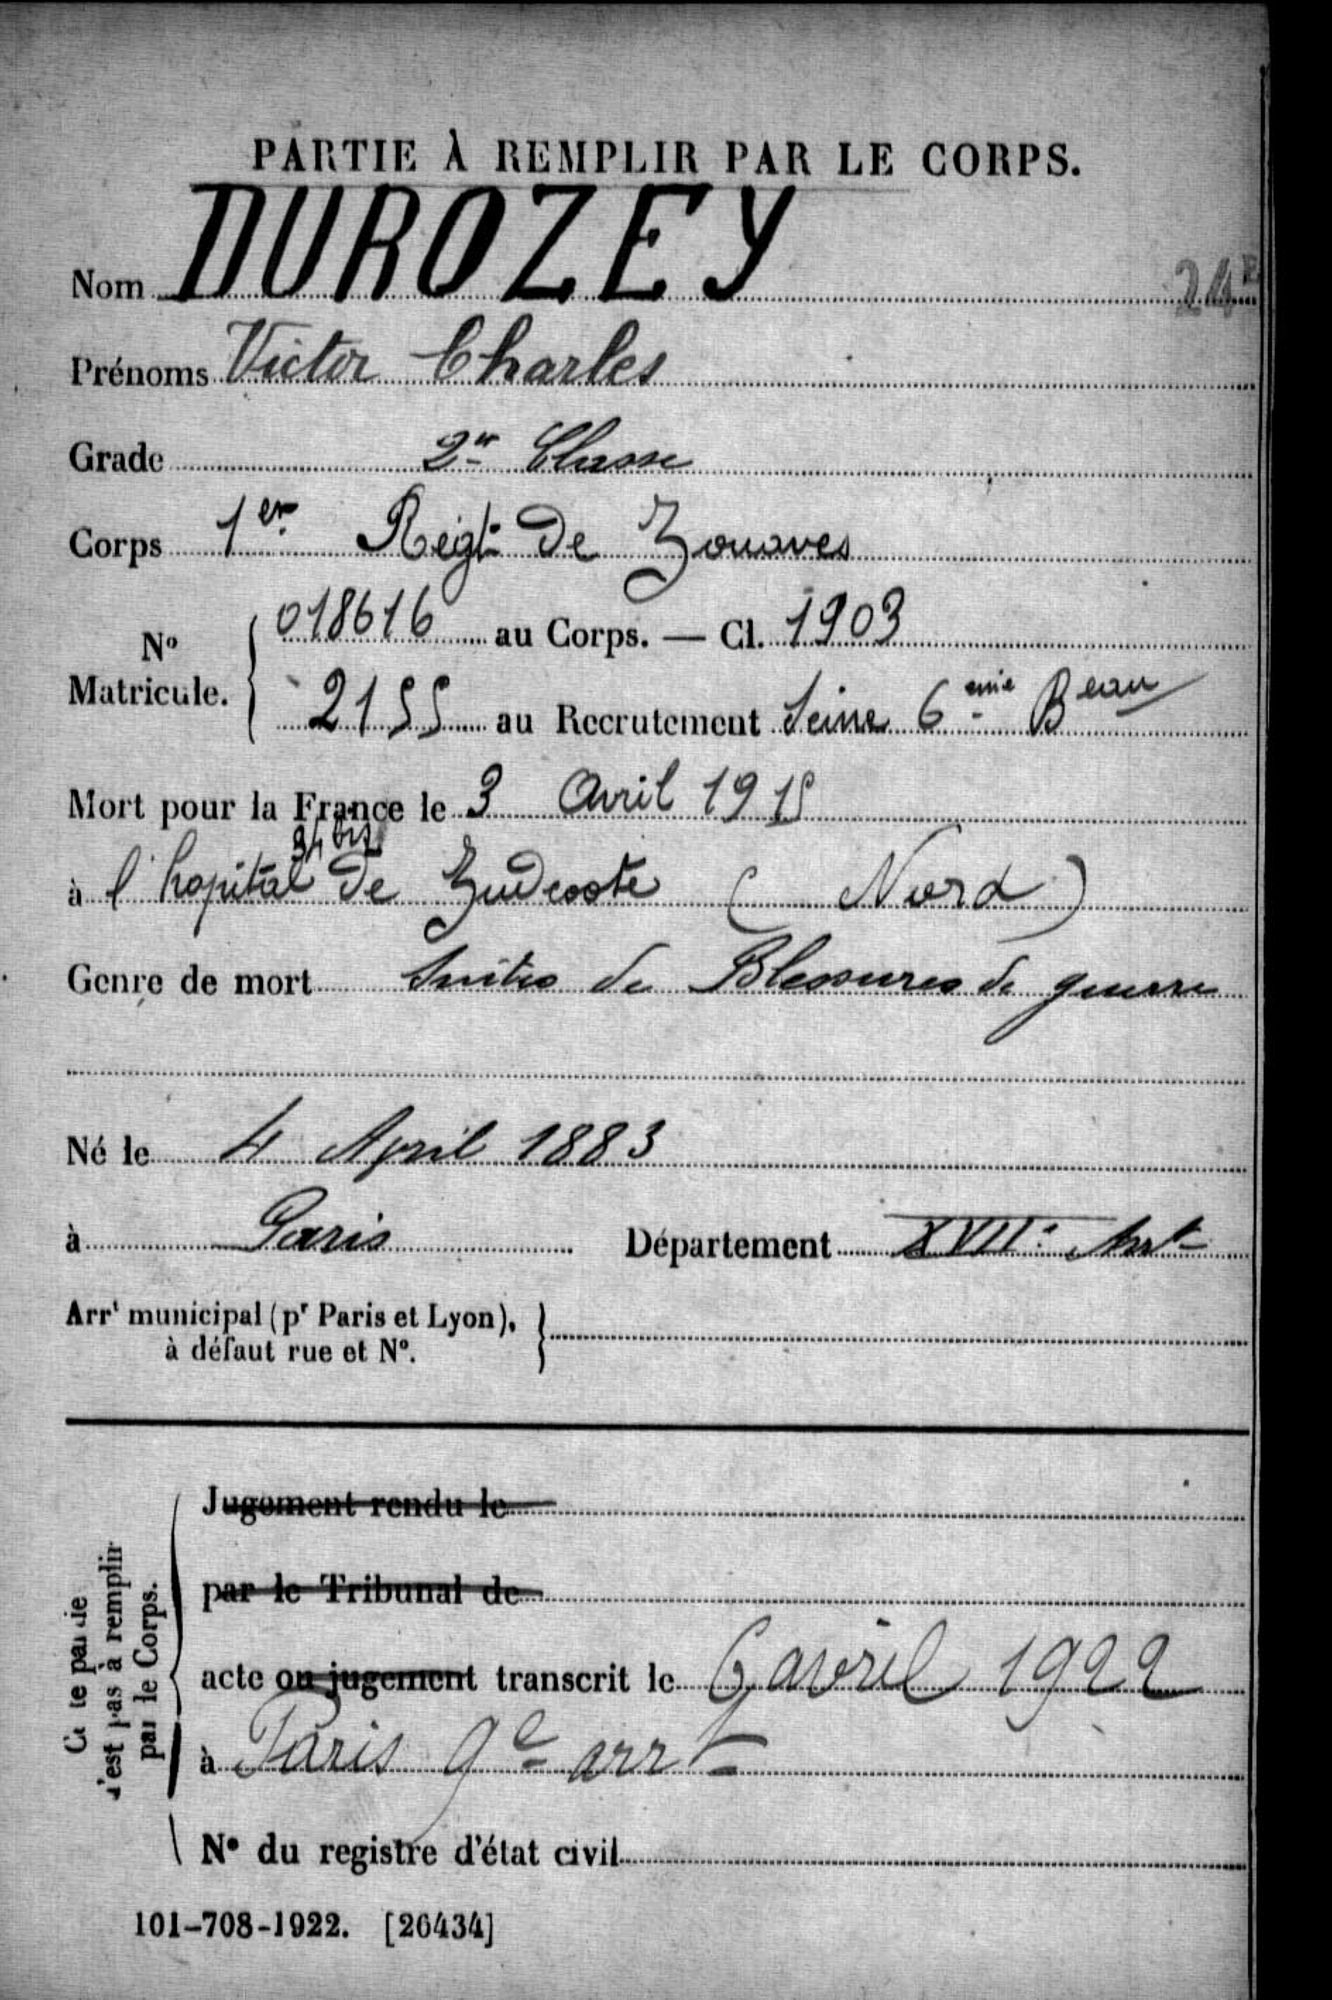 PARTIE À REMPLIR PAR LE CORPS.
Nom DUROZEY
24E
Prénoms Victor Charles
Grade 2e Classe
Corps 1er Régt de Zouaves
No Matricule. { 018616 au Corps. — Cl. 1903
2155 au Recrutement Seine 6ème Beau
Mort pour la France le 3 Avril 1915
34 bis
à l'hopital de Zudcoote (Nord)
Genre de mort Suites de Blessures de guerre
Né le 4 April 1883
à Paris Département XVIIe Arrt
Arrt municipal (pr Paris et Lyon), à défaut rue et No. }
Cette partie n'est pas à remplir par le Corps.
Jugement rendu le
par le Tribunal de
acte ou jugement transcrit le 6 avril 1922
à Paris 9e arrt
No du registre d'état civil
101-708-1922. [26434]